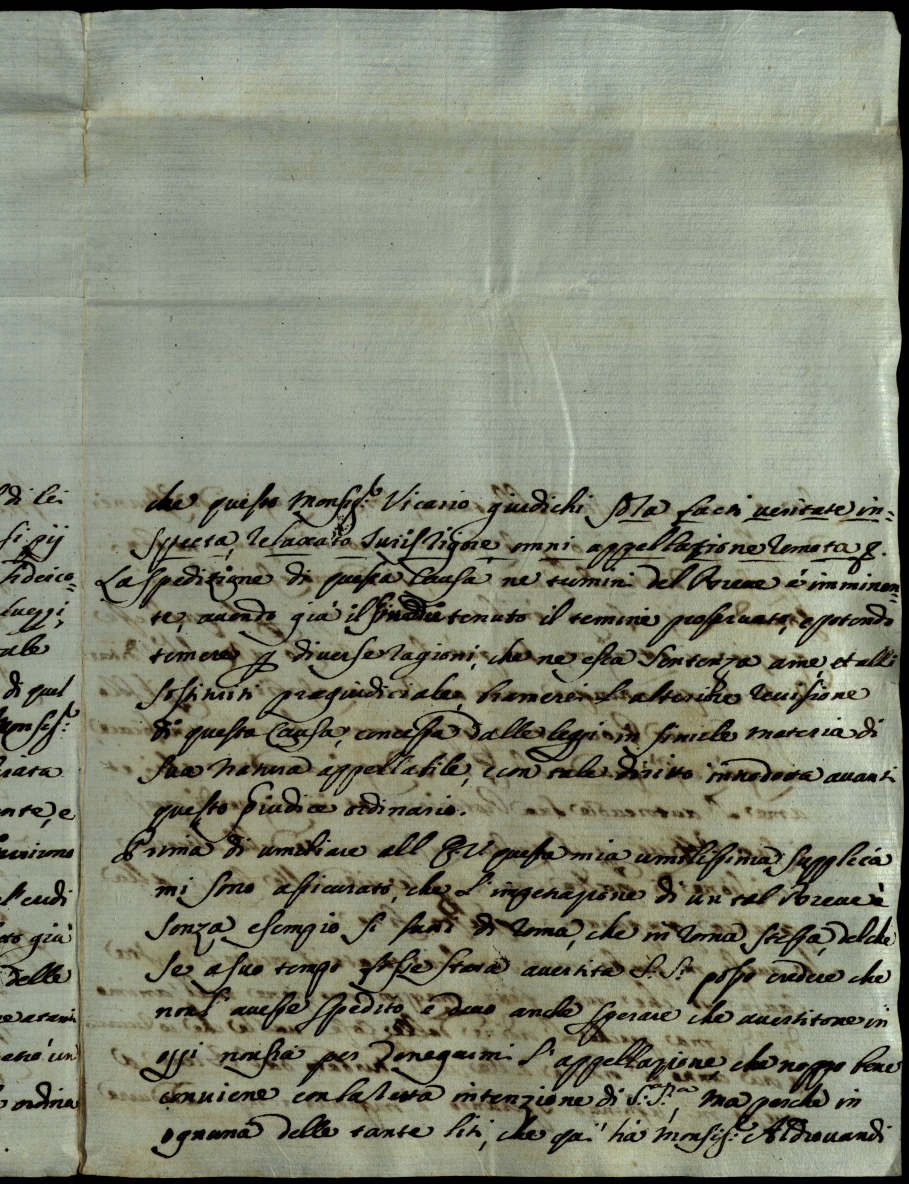 di lei
si pij
fideico=
luoggi,
ale
di quel
Monsig.r
rata
nte, e
l'eredi
to già
delle
ordina
che questo Monsig.r Vicario giudichi sola facti veritate in=
specta, relaxato Iuris rigore, omni appellatione remota &.
La spedizione di questa Causa ne termini del Breve è imminen
te, avendo già il Giudice tenuto il termine preservato, e potendo
temere p diverse ragioni, che ne esca Sentenza a me, et alli
sostituiti pregiudiciale, bramerei l'ulteriore revisione
di questa Causa, concessa dalle leggi in simile materia di
sua natura appellabile, e con tale diritto introdotta avanti
questo Giudice ordinario.
Prima di umiliare all E: V questa mia umilissima supplica
mi sono assicurato, che L'impetrazione di un tal Breve è
senza esempio si fuori di Roma, che in Roma stessa, del che
se a suo tempo fosse stata avertita S: S.tà posso credere che
non l'avesse spedito, e devo anche sperare che avertitone in
oggi non sia per denegarmi l'appellazione che troppo bene
conviene con la retta intenzione di S: S.tà, ma perche in
ognuna delle tante liti, che quì hà Monsig.r Aldrovandi